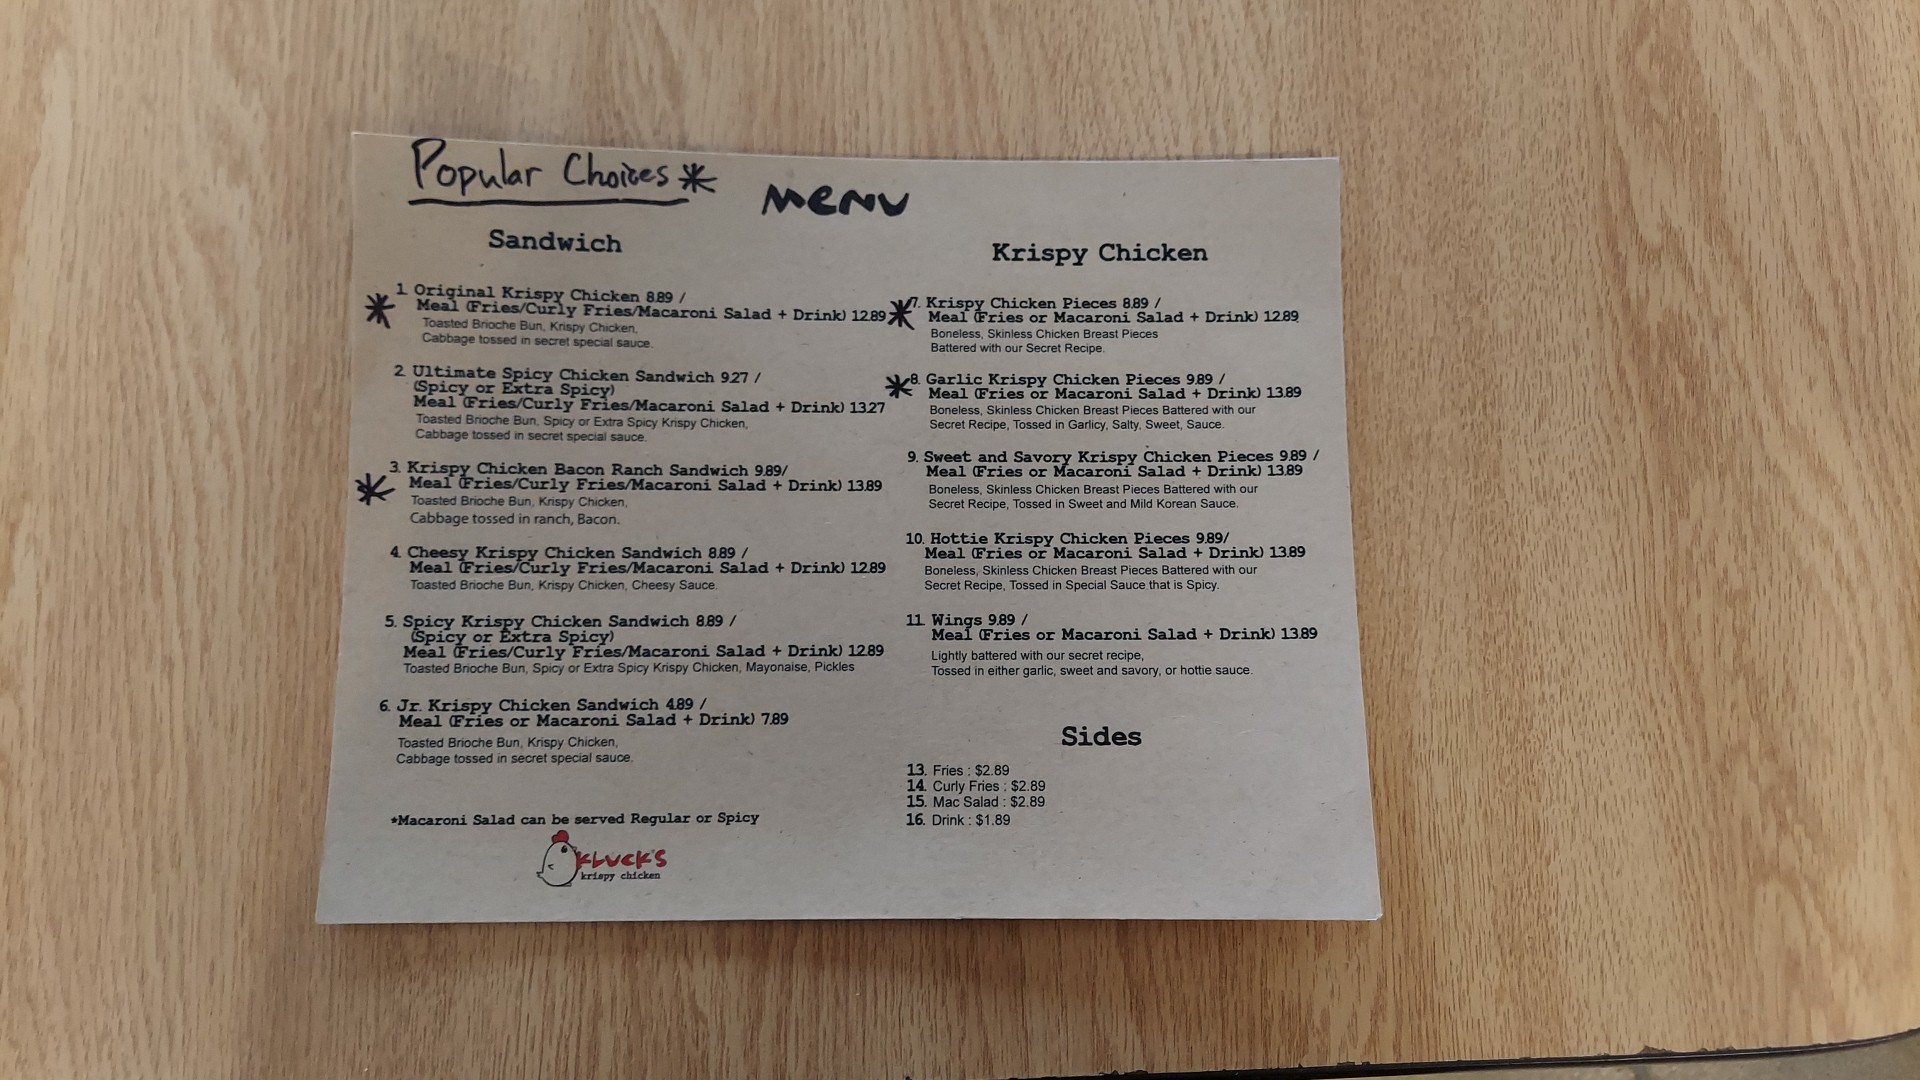 Popular Choices*
MENU
Sandwich
1. Original Krispy Chicken 8.89 /
Meal (Fries/Curly Fries/Macaroni Salad + Drink) 12.89
Toasted Brioche Bun, Krispy Chicken,
Cabbage tossed in secret special sauce.
2. Ultimate Spicy Chicken Sandwich 9.27 /
(Spicy or Extra Spicy)
Meal (Fries/Curly Fries/Macaroni Salad + Drink) 13.27
Toasted Brioche Bun, Spicy or Extra Spicy Krispy Chicken,
Cabbage tossed in secret special sauce.
3. Krispy Chicken Bacon Ranch Sandwich 9.89/
Meal (Fries/Curly Fries/Macaroni Salad + Drink) 13.89
Toasted Brioche Bun, Krispy Chicken,
Cabbage tossed in ranch, Bacon.
4. Cheesy Krispy Chicken Sandwich 8.89 /
Meal (Fries/Curly Fries/Macaroni Salad + Drink) 12.89
Toasted Brioche Bun, Krispy Chicken, Cheesy Sauce.
5. Spicy Krispy Chicken Sandwich 8.89 /
(Spicy or Extra Spicy)
Meal (Fries/Curly Fries/Macaroni Salad + Drink) 12.89
Toasted Brioche Bun, Spicy or Extra Spicy Krispy Chicken, Mayonaise, Pickles
6. Jr. Krispy Chicken Sandwich 4.89 /
Meal (Fries or Macaroni Salad + Drink) 7.89
Toasted Brioche Bun, Krispy Chicken,
Cabbage tossed in secret special sauce.
*Macaroni Salad can be served Regular or Spicy
KLUCK'S
krispy chicken
Krispy Chicken
7. Krispy Chicken Pieces 8.89 /
Meal (Fries or Macaroni Salad + Drink) 12.89
Boneless, Skinless Chicken Breast Pieces
Battered with our Secret Recipe.
8. Garlic Krispy Chicken Pieces 9.89 /
Meal (Fries or Macaroni Salad + Drink) 13.89
Boneless, Skinless Chicken Breast Pieces Battered with our
Secret Recipe, Tossed in Garlicy, Salty, Sweet, Sauce.
9. Sweet and Savory Krispy Chicken Pieces 9.89 /
Meal (Fries or Macaroni Salad + Drink) 13.89
Boneless, Skinless Chicken Breast Pieces Battered with our
Secret Recipe, Tossed in Sweet and Mild Korean Sauce.
10. Hottie Krispy Chicken Pieces 9.89/
Meal (Fries or Macaroni Salad + Drink) 13.89
Boneless, Skinless Chicken Breast Pieces Battered with our
Secret Recipe, Tossed in Special Sauce that is Spicy.
11. Wings 9.89 /
Meal (Fries or Macaroni Salad + Drink) 13.89
Lightly battered with our secret recipe,
Tossed in either garlic, sweet and savory, or hottie sauce.
Sides
13. Fries : $2.89
14. Curly Fries : $2.89
15. Mac Salad : $2.89
16. Drink : $1.89